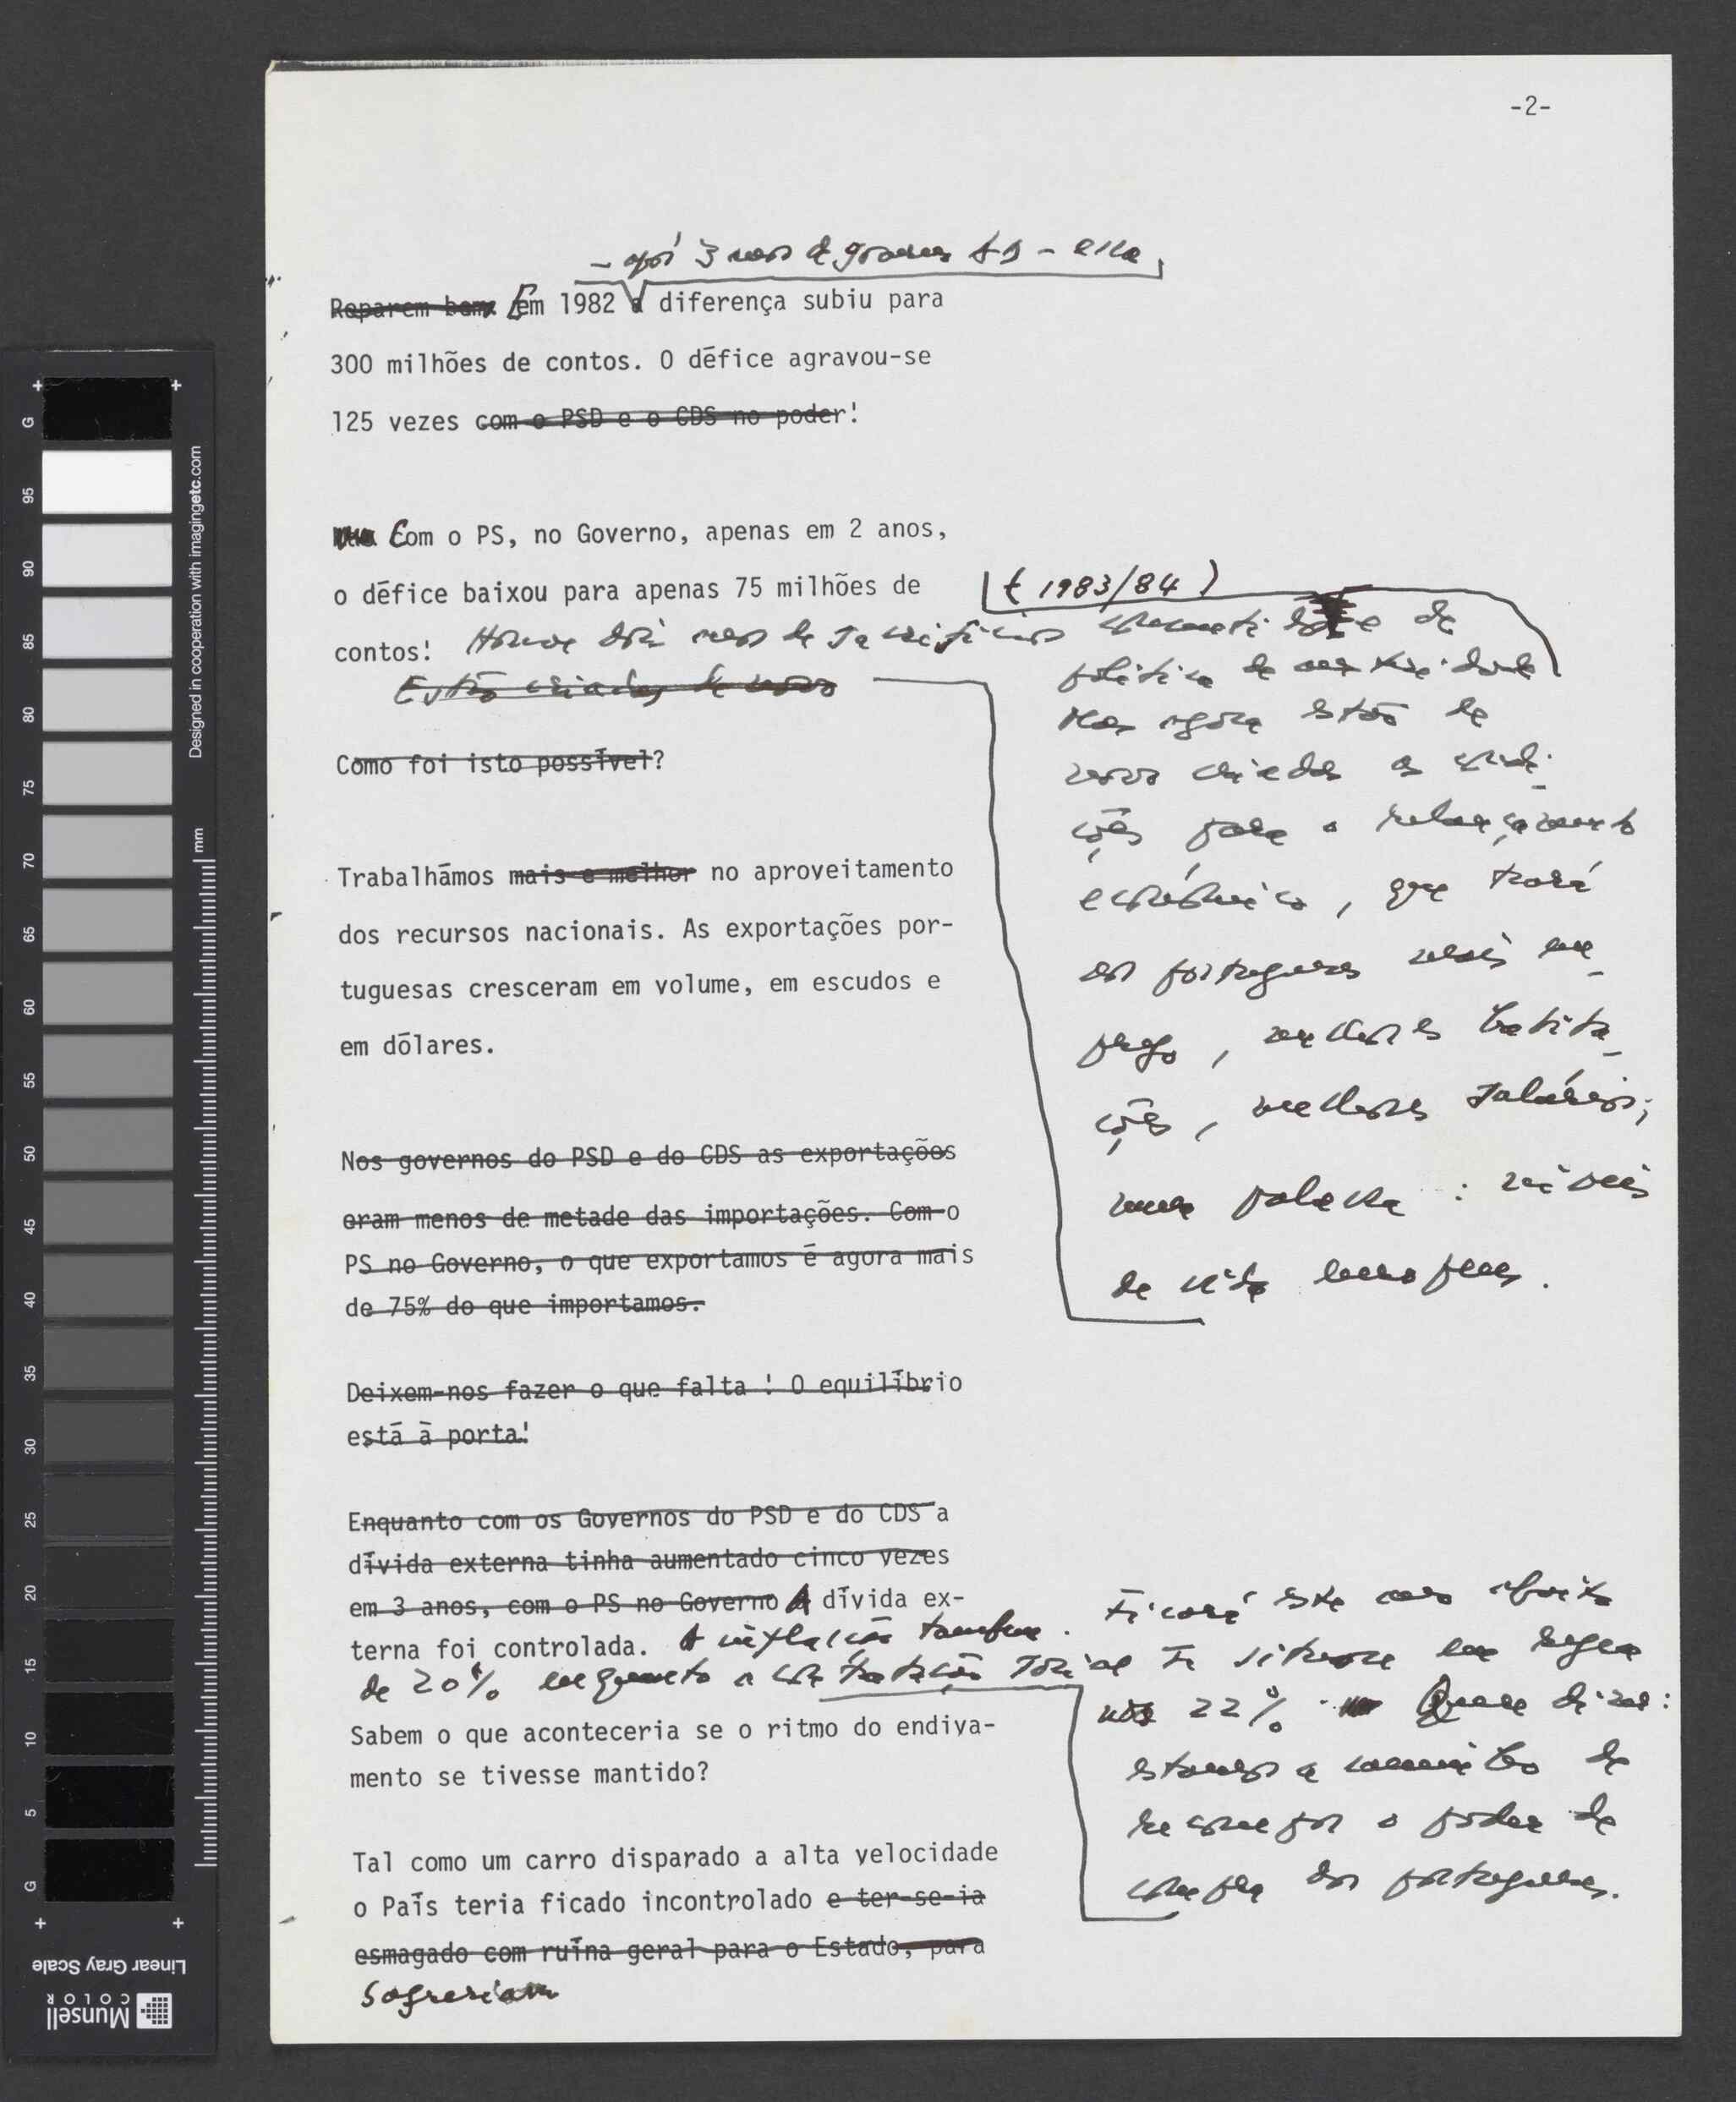 -2-
- após 3 anos de governo AD - essa
Reparem bem. Em 1982 a diferença subiu para
300 milhões de contos. O défice agravou-se
125 vezes com o PSD e o CDS no poder!
Com o PS, no Governo, apenas em 2 anos,
o défice baixou para apenas 75 milhões de
(1983/84)
contos! Houve dois anos de sacrifícios
Estão criadas de novo
política de austeridade
Mas agora estão de
novo criadas as condi-
ções para o relançamento
económico, que trará
aos portugueses mais em-
prego, melhores habita-
ções, melhores salários;
numa palavra: níveis
de vida europeus.
Como foi isto possível?
Trabalhámos mais e melhor no aproveitamento
dos recursos nacionais. As exportações por-
tuguesas cresceram em volume, em escudos e
em dólares.
Nos governos do PSD e do CDS as exportações
eram menos de metade das importações. Com o
PS no Governo, o que exportamos é agora mais
de 75% do que importamos.
Deixem-nos fazer o que falta ! O equilíbrio
está à porta!
Enquanto com os Governos do PSD e do CDS a
dívida externa tinha aumentado cinco vezes
em 3 anos, com o PS no Governo A dívida ex-
terna foi controlada. A inflação também. Ficará este ano abaixo
de 20% enquanto a contratação social se situou em regra
nos 22%. Quer dizer:
estamos a caminho de
recompor o poder de
compra dos portugueses.
Sabem o que aconteceria se o ritmo do endiva-
mento se tivesse mantido?
Tal como um carro disparado a alta velocidade
o País teria ficado incontrolado e ter-se-ia
esmagado com ruína geral para o Estado, para
Sofreriam
G 95 90 85 80 75 70 65 60 55 50 45 40 35 30 25 20 15 10 5 G
mm
Designed in cooperation with imagingetc.com
Linear Gray Scale
Munsell
COLOR